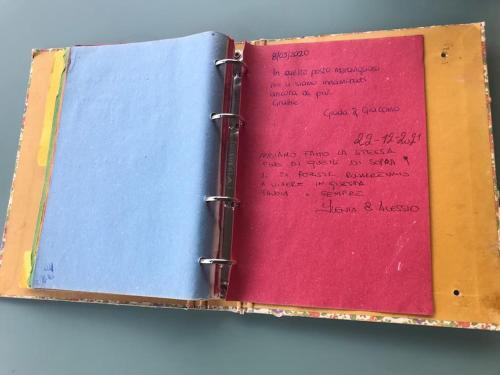 8/03/2020
In questo posto meraviglioso
noi ci siamo innamorati
ancora di più
Grazie
Giada & Giacomo
22-12-2021
ABBIAMO FATTO LA STESSA
DI QUELLI DI SOPRA
POTESSE RIMARREMMO
A VIVERE IN QUESTA
SEMPRE
& ALESSIO